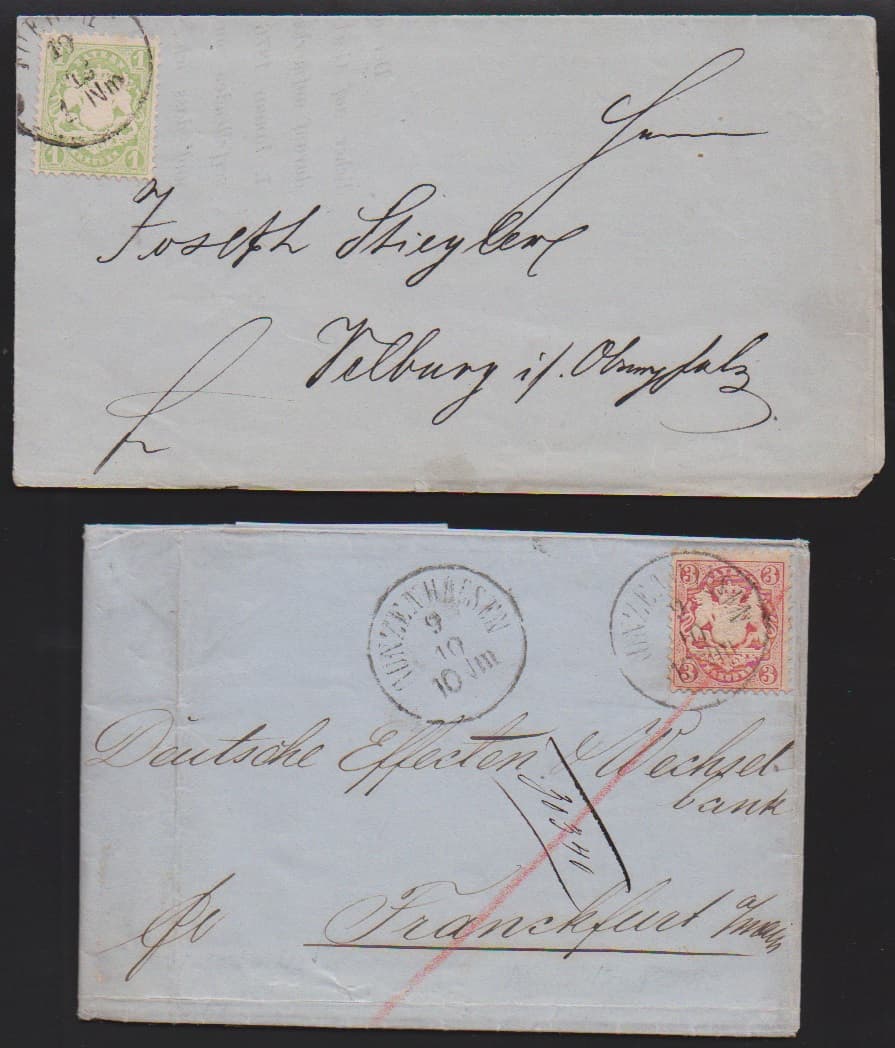 1 1
10
13
IVm
1 1
Herrn
Joseph Stiegler
Velburg i/. Oberpfalz
GUNZENHAUSEN
9
10
10 Vm
3 3
3 3
Deutsche Effecten & Wechsel-
bank
Franckfurt a/Main